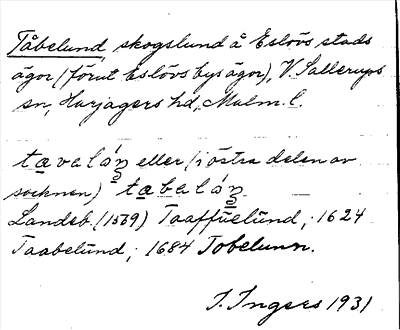 Tåbelund, skogslund å Eslövs stads
ägor (förut Eslövs bys ägor), V. Sallerups
sn, Harjagers hd, Malm. l.
tavalán eller (i östra delen av
socknen) tabalán
Landeb. (1569) Taaffuelund, 1624
Taabelund, 1684 Tobelunn.
I. Ingers 1931